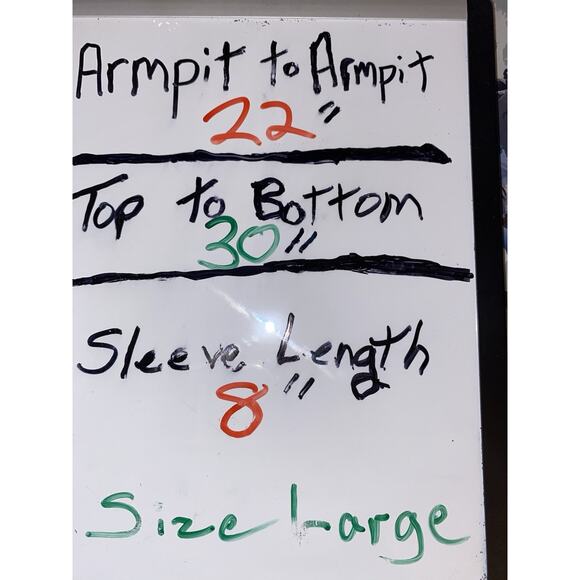 Armpit to Armpit
22"
Top to Bottom
30"
Sleeve Length
8"
Size Large